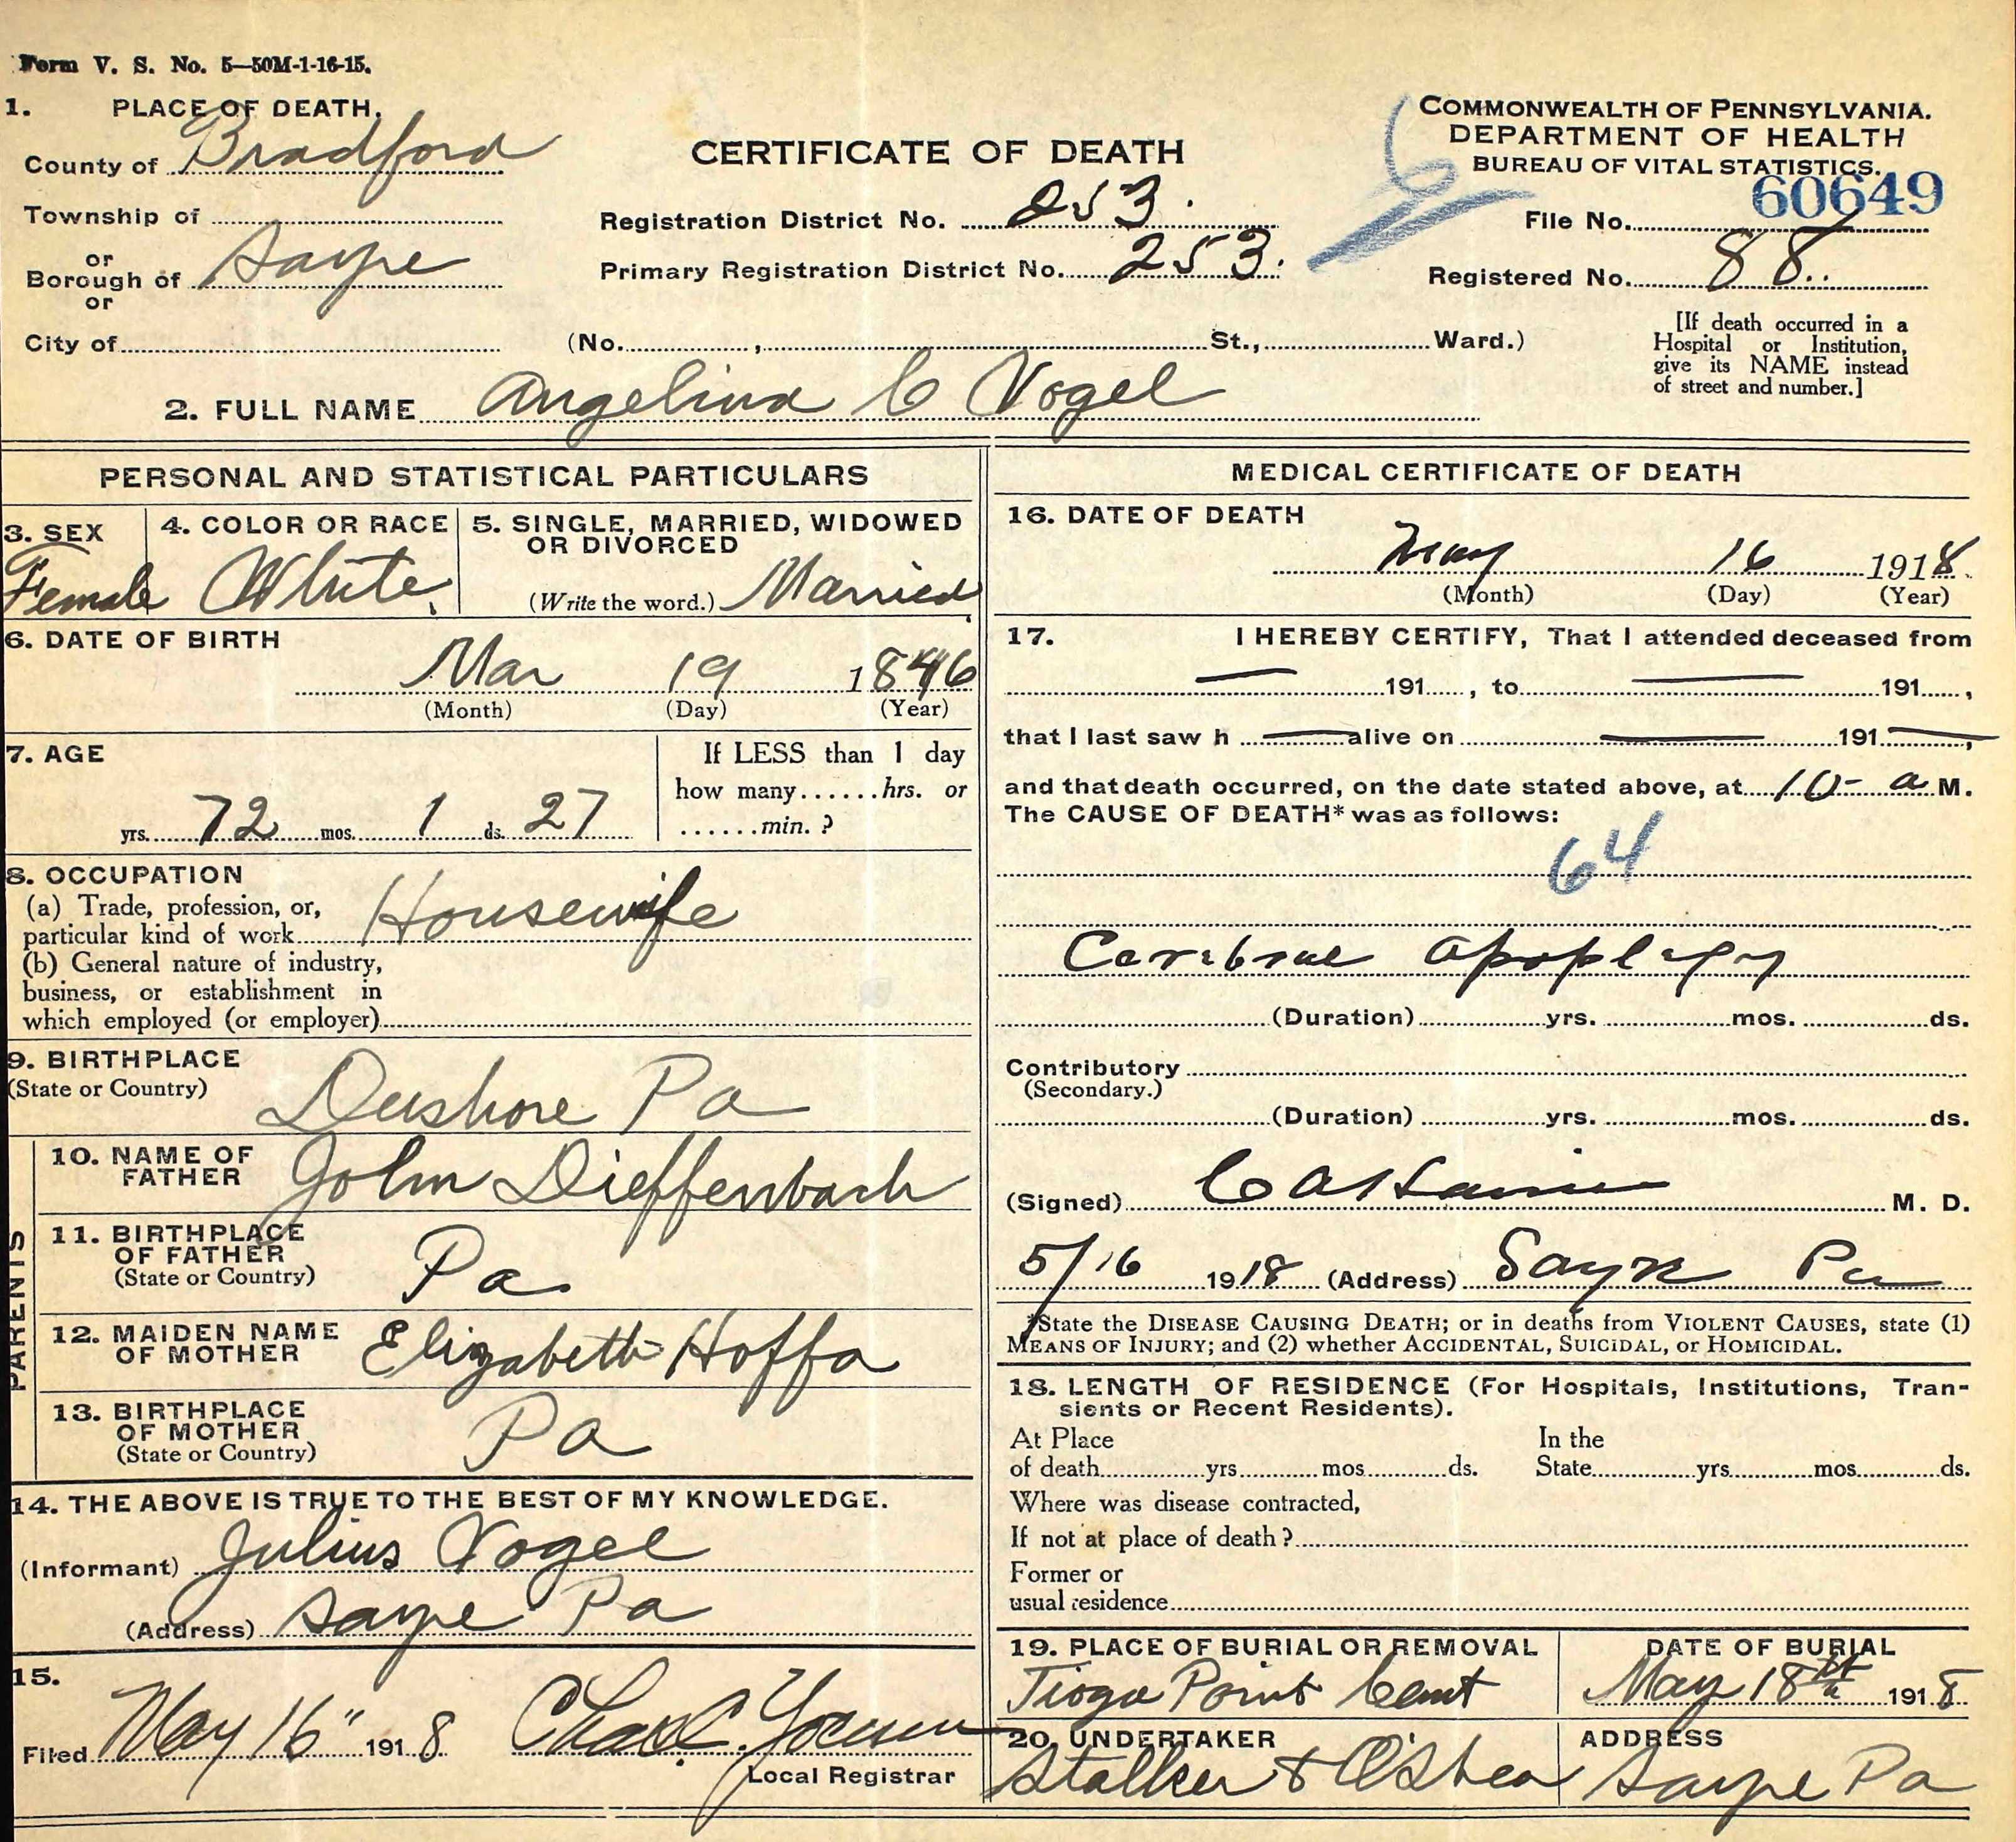 Form V. S. No. 5—50M-1-16-15.
1. PLACE OF DEATH.
County of Bradford
Township of
or
Borough of Sayre
or
City of
CERTIFICATE OF DEATH
Registration District No. 253.
Primary Registration District No. 253.
(No. , St., Ward.)
COMMONWEALTH OF PENNSYLVANIA.
DEPARTMENT OF HEALTH
BUREAU OF VITAL STATISTICS.
File No. 60649
Registered No. 88.
[If death occurred in a
Hospital or Institution,
give its NAME instead
of street and number.]
2. FULL NAME Angelina C Vogel
PERSONAL AND STATISTICAL PARTICULARS
3. SEX
Female
4. COLOR OR RACE
White.
5. SINGLE, MARRIED, WIDOWED
OR DIVORCED
(Write the word.) Married
6. DATE OF BIRTH
Mar 19 1846
(Month) (Day) (Year)
7. AGE
yrs. 72 mos. 1 ds. 27
If LESS than 1 day
how many......hrs. or
......min. ?
8. OCCUPATION
(a) Trade, profession, or,
particular kind of work Housewife
(b) General nature of industry,
business, or establishment in
which employed (or employer)
9. BIRTHPLACE
(State or Country)
Dushore Pa
PARENTS
10. NAME OF
FATHER
John Dieffenbach
11. BIRTHPLACE
OF FATHER
(State or Country)
Pa.
12. MAIDEN NAME
OF MOTHER
Elizabeth Hoffa
13. BIRTHPLACE
OF MOTHER
(State or Country)
Pa
14. THE ABOVE IS TRUE TO THE BEST OF MY KNOWLEDGE.
(Informant) Julius Vogel
(Address) Sayre Pa
15.
Filed May 16" 1918 Chas. C.
Local Registrar
MEDICAL CERTIFICATE OF DEATH
16. DATE OF DEATH
May 16 1918.
(Month) (Day) (Year)
17. I HEREBY CERTIFY, That I attended deceased from
— 191 , to — 191 ,
that I last saw h — alive on — 191 —,
and that death occurred, on the date stated above, at 10- a M.
The CAUSE OF DEATH* was as follows:
64
Cerebral apoplexy
(Duration) yrs. mos. ds.
Contributory
(Secondary.)
(Duration) yrs. mos. ds.
(Signed) M. D.
5/16 1918 (Address) Sayre Pa
*State the DISEASE CAUSING DEATH; or in deaths from VIOLENT CAUSES, state (1)
MEANS OF INJURY; and (2) whether ACCIDENTAL, SUICIDAL, or HOMICIDAL.
18. LENGTH OF RESIDENCE (For Hospitals, Institutions, Tran-
sients or Recent Residents).
At Place
of death yrs mos ds.
In the
State yrs mos ds.
Where was disease contracted,
If not at place of death ?
Former or
usual residence
19. PLACE OF BURIAL OR REMOVAL
Tioga Point Cemt
DATE OF BURIAL
May 18th 1918
20. UNDERTAKER
Stalker & O'Shea
ADDRESS
Sayre Pa